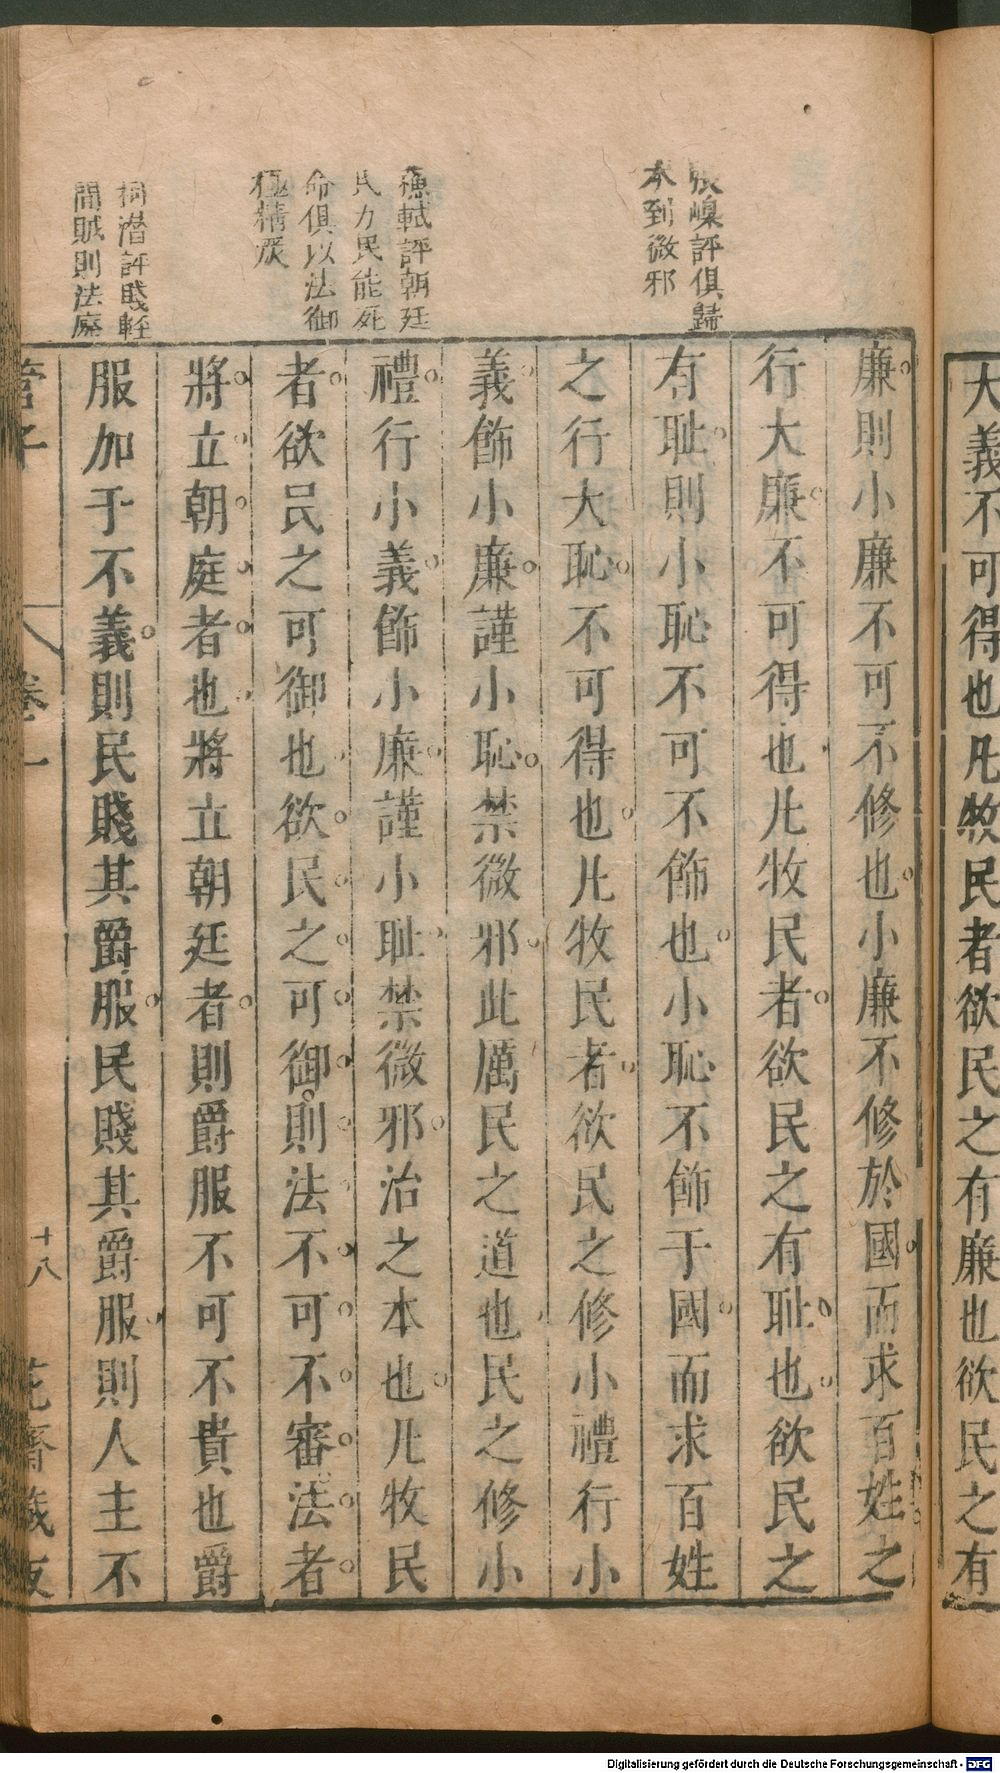 大義不可得也凡牧民者欲民之有廉也欲民之有
張嵲評俱歸
本到微邪
廉則小廉不可不修也小廉不修於國而求百姓之
行大廉不可得也凡牧民者欲民之有恥也欲民之
有恥則小恥不可不飾也小恥不飾于國而求百姓
之行大恥不可得也凡牧民者欲民之修小禮行小
義飾小廉謹小恥禁微邪此厲民之道也民之修小
評朝廷
民力民能死
命俱以法御
極精
禮行小義飾小廉謹小恥禁微邪治之本也凡牧民
者欲民之可御也欲民之可御則法不可不審法者
將立朝庭者也將立朝廷者則爵服不可不貴也爵
潛評賤輕
間賊則法廢
服加于不義則民賤其爵服民賤其爵服則人主不
管子
卷一
十八
花齋藏板
Digitalisierung gefördert durch die Deutsche Forschungsgemeinschaft - DFG